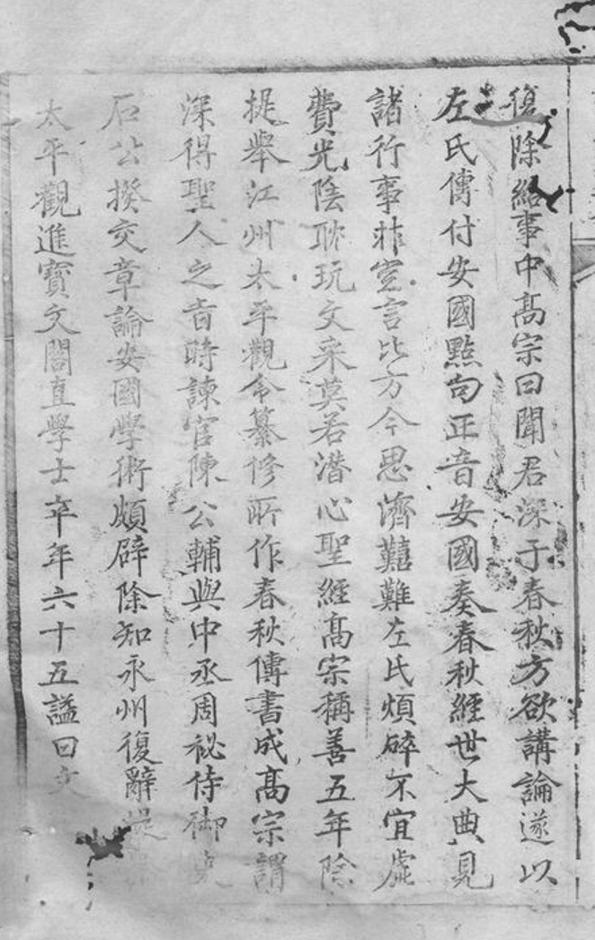 復除給事中髙宗曰聞君深于春秋方欲講論遂以
左氏傳付安國㸃句正音安國奏春秋經世大典見
諸行事非空言比方今思濟艱難左氏煩碎不宜虛
費光陰耽玩文采莫若潜心聖經髙宗稱善五年除
提舉江州太平觀令纂修所作春秋傳書成髙宗謂
深得聖人之旨時諫官陳公輔與中丞周祕侍御
石公揆交章論安國學術頗辟除知永州復辭提
太平觀進寳文閣直學士卒年六十五謚曰文